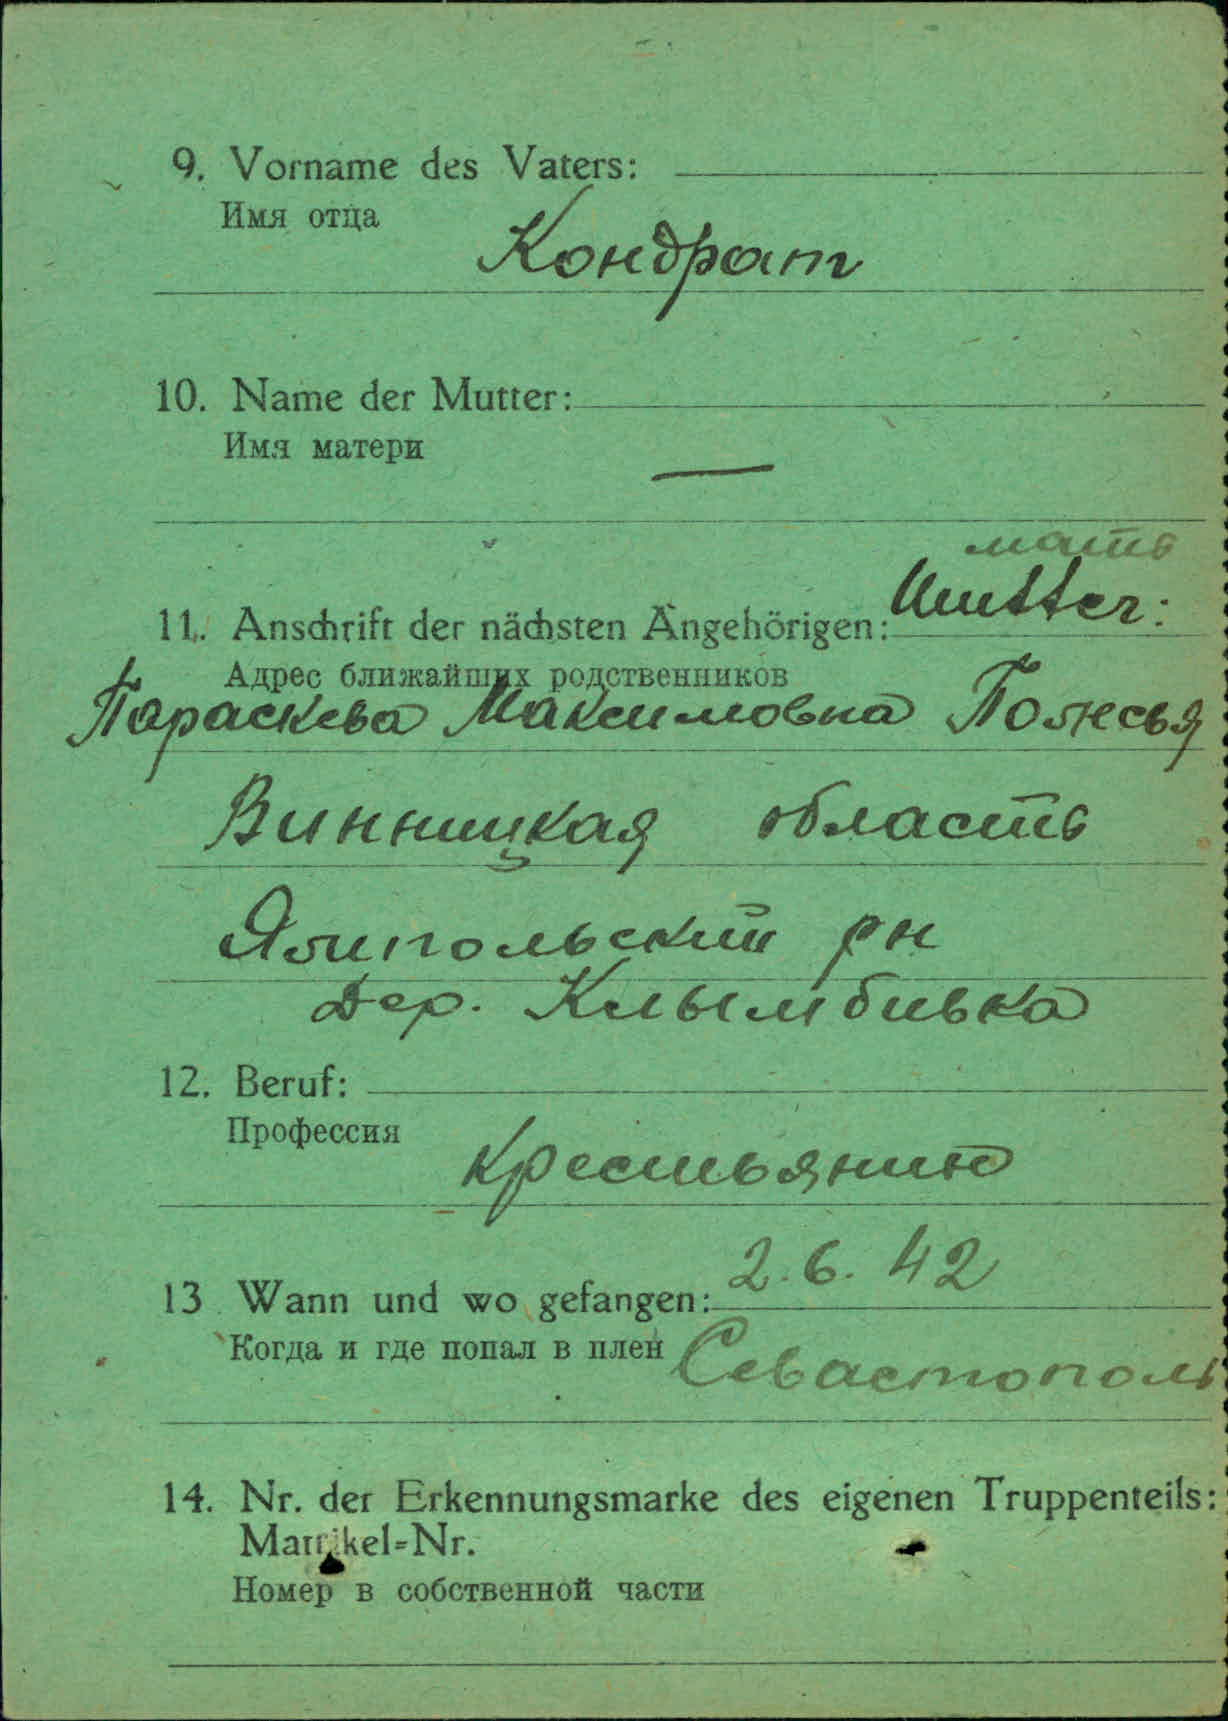 9. Vorname des Vaters:
Имя отца
Кондрат
10. Name der Mutter:
Имя матери
—
мать
11. Anschrift der nächsten Angehörigen: Mutter:
Адрес ближайших родственников
Параскева Максимовна
Винницкая область
Ямпольский рн
Дер.
12. Beruf:
Профессия
Крестьянин
13. Wann und wo gefangen: 2.6.42
Когда и где попал в плен Севастополь
14. Nr. der Erkennungsmarke des eigenen Truppenteils:
Matrikel-Nr.
Номер в собственной части